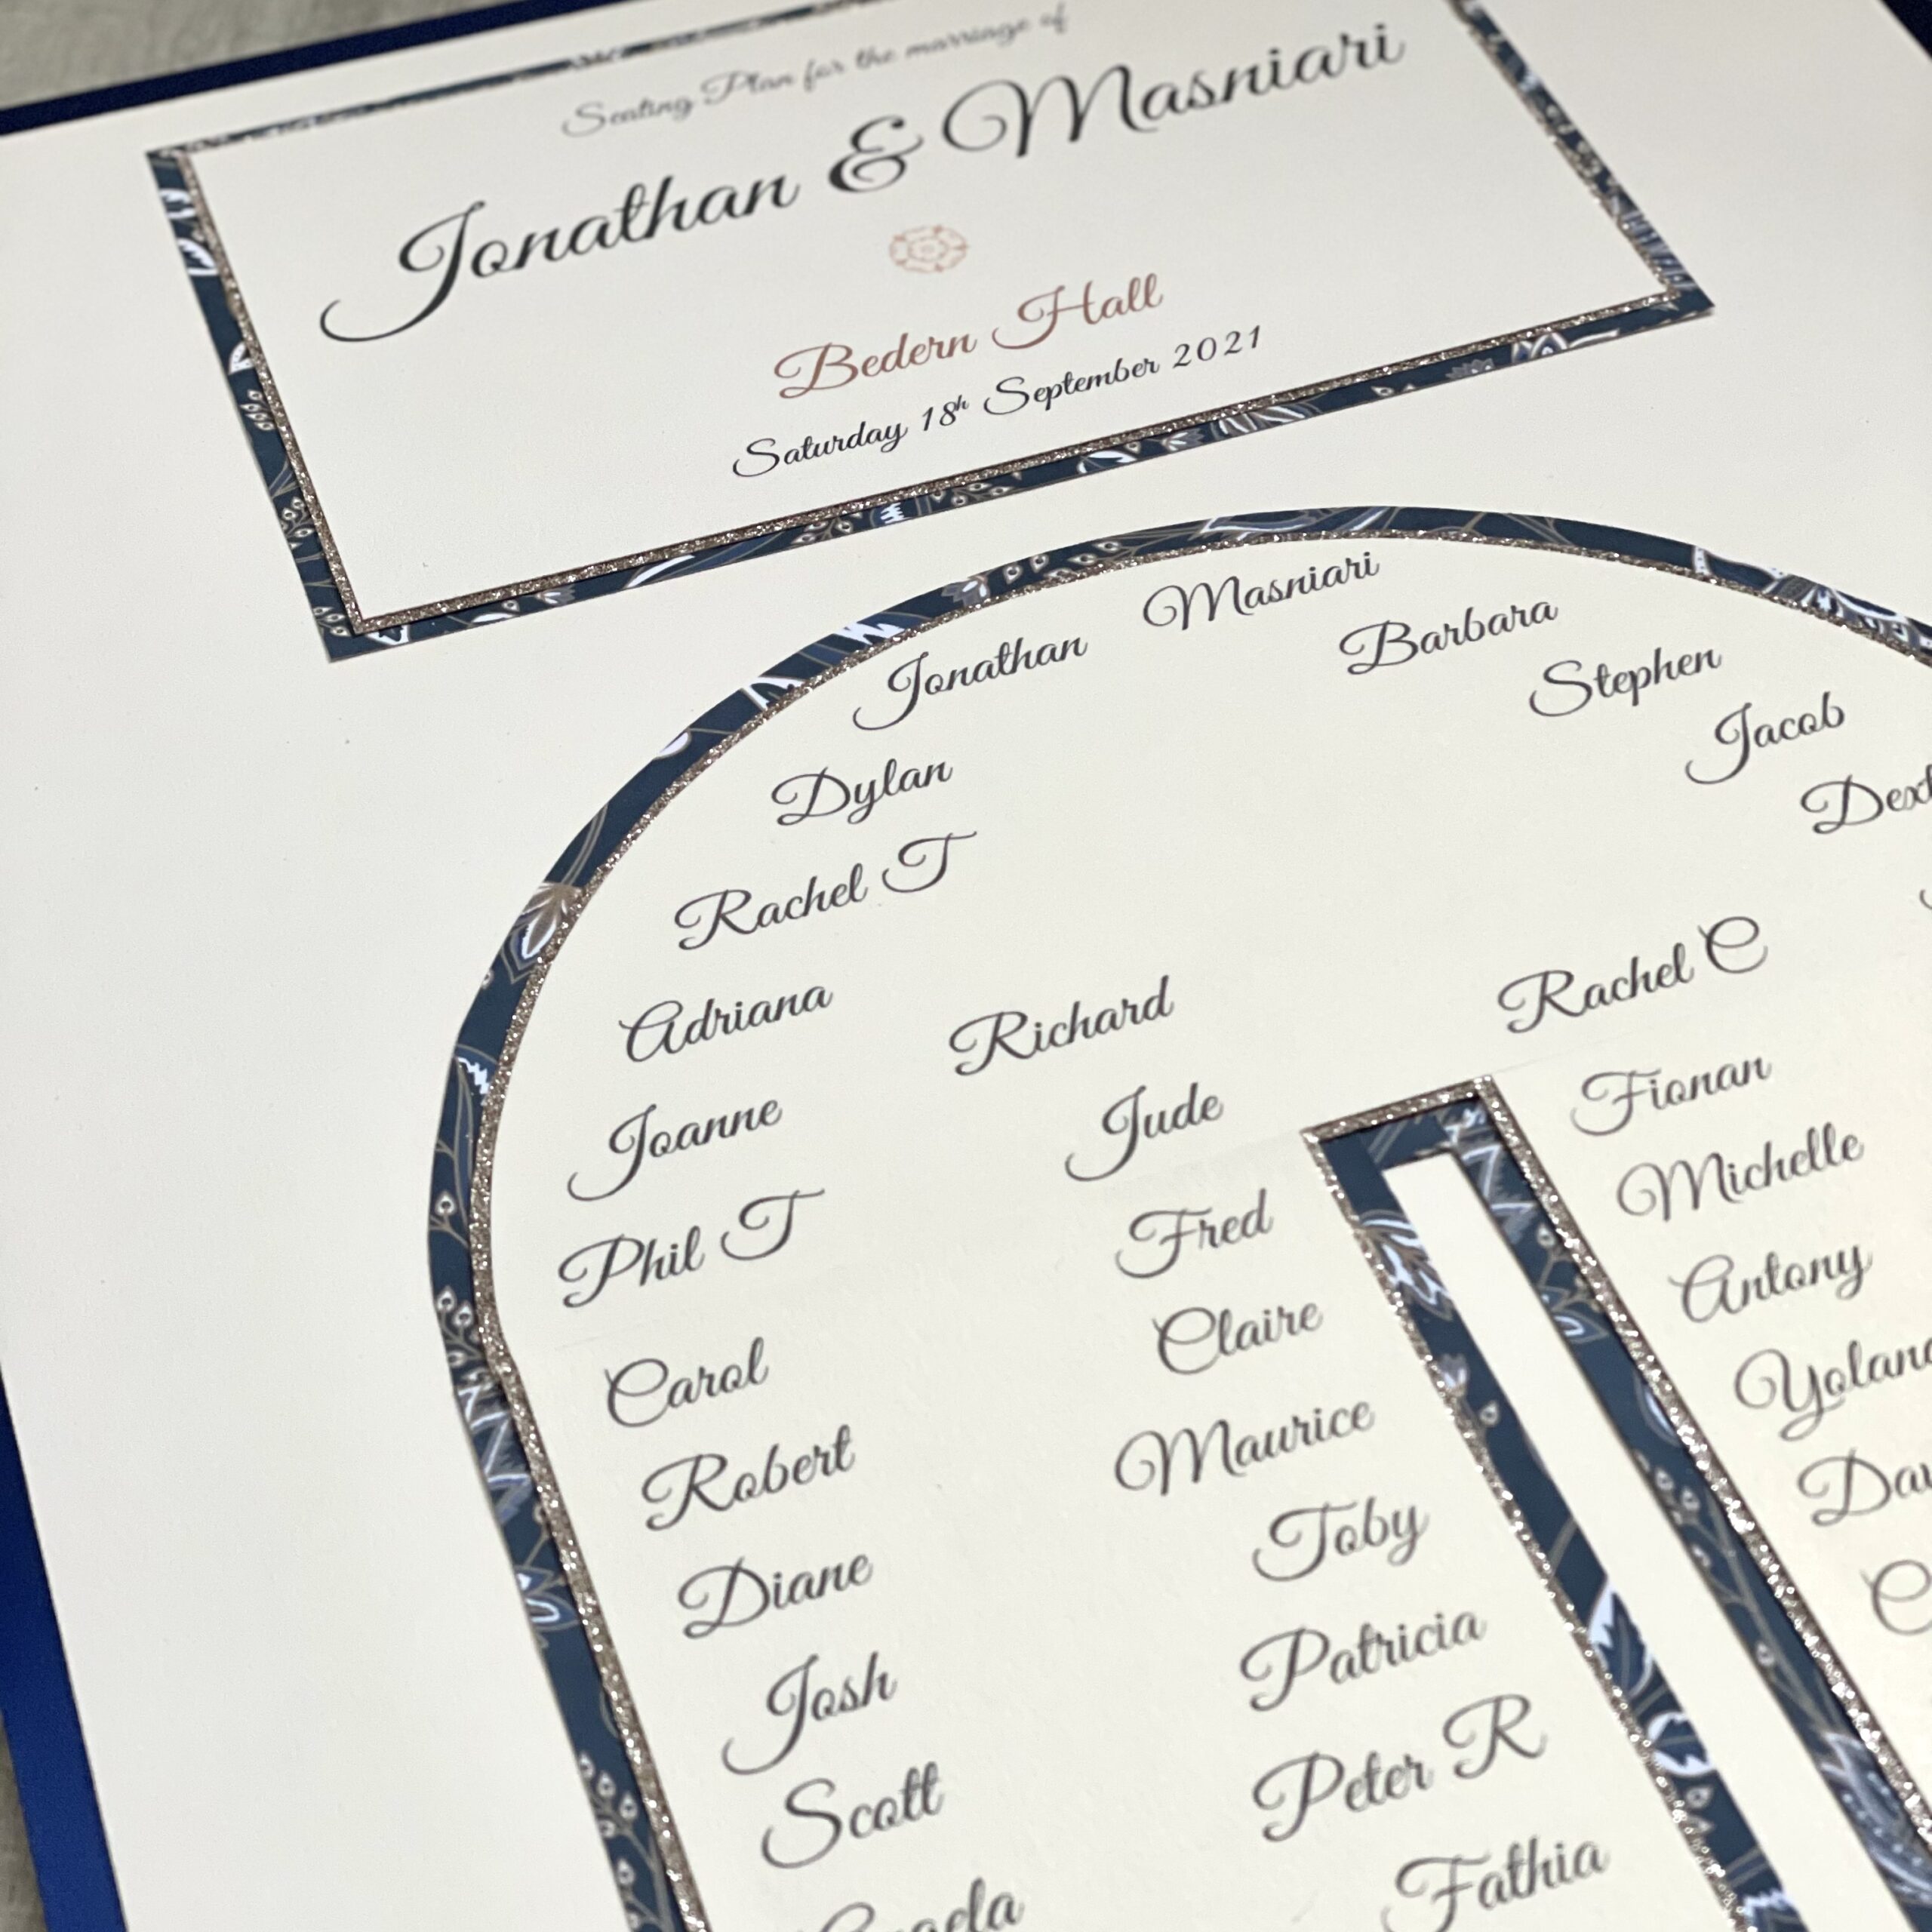 Seating Plan for the marriage of
Jonathan & Masniari
Bedern Hall
Saturday 18th September 2021
Jonathan
Masniari
Barbara
Stephen
Jacob
Dylan
Rachel T
Adriana
Joanne
Phil T
Carol
Robert
Diane
Josh
Scott
Richard
Jude
Fred
Claire
Maurice
Toby
Patricia
Peter R
Fathia
Rachel C
Fionan
Michelle
Antony